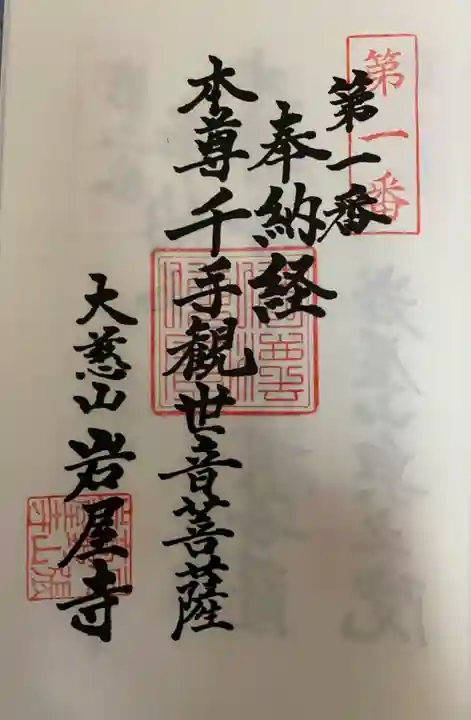 第一番
第一番
奉納経
本尊千手観世音菩薩
大慈山岩屋寺